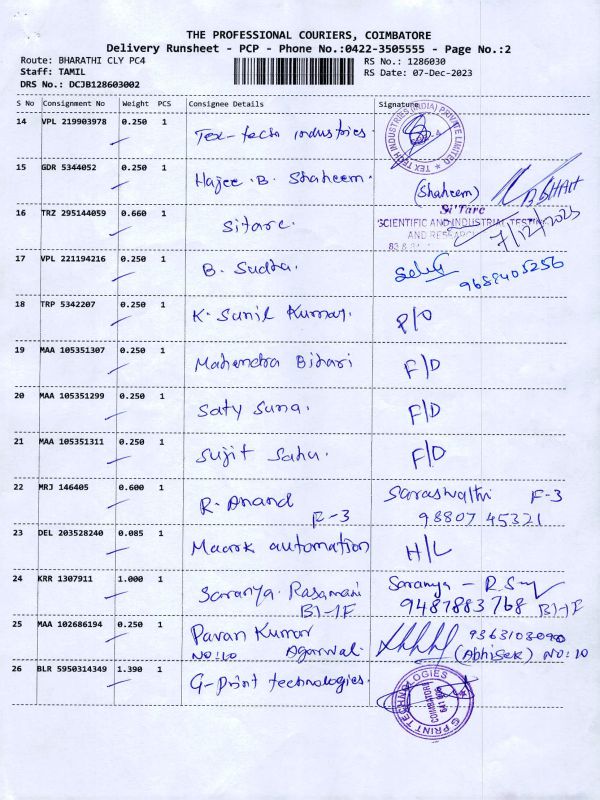 THE PROFESSIONAL COURIERS, COIMBATORE
Delivery Runsheet - PCP - Phone No.:0422-3505555 - Page No.:2
Route: BHARATHI CLY PC4 RS No.: 1286030
Staff: TAMIL RS Date: 07-Dec-2023
DRS No.: DCJB128603002
S No Consignment No Weight PCS Consignee Details Signature
14 VPL 219903978 0.250 1 Tex-tech industries. TEX TECH INDUSTRIES (INDIA) PRIVATE LIMITED
15 GDR 5344052 0.250 1 Hajee.B. Shaheem. (Shaheem)
16 TRZ 295144059 0.660 1 Sitarc. Si'Tarc
SCIENTIFIC AND INDUSTRIAL TESTING
AND RESEARCH
7/12/2023
17 VPL 221194216 0.250 1 B. Sudha. 9688405256
18 TRP 5342207 0.250 1 K. Sunil Kumar. P/O
19 MAA 105351307 0.250 1 Mahendra Bihari F/D
20 MAA 105351299 0.250 1 Saty Suna. F/D
21 MAA 105351311 0.250 1 Sujit Sahu. F/D
22 MRJ 146405 0.600 1 R. Anand Saraswathi F-3
F-3 98807 45321
23 DEL 203528240 0.085 1 Maark automation H/L
24 KRR 1307911 1.000 1 Saranya. Rasamani Saranya -
B1-1F 9487883768 B1-1F
25 MAA 102686194 0.250 1 Pavan Kumar
NO:10 Agarwal. (Abhisek) NO:10
26 BLR 5950314349 1.390 1 G-Print technologies. G PRINT TECHNOLOGIES
COIMBATORE
641